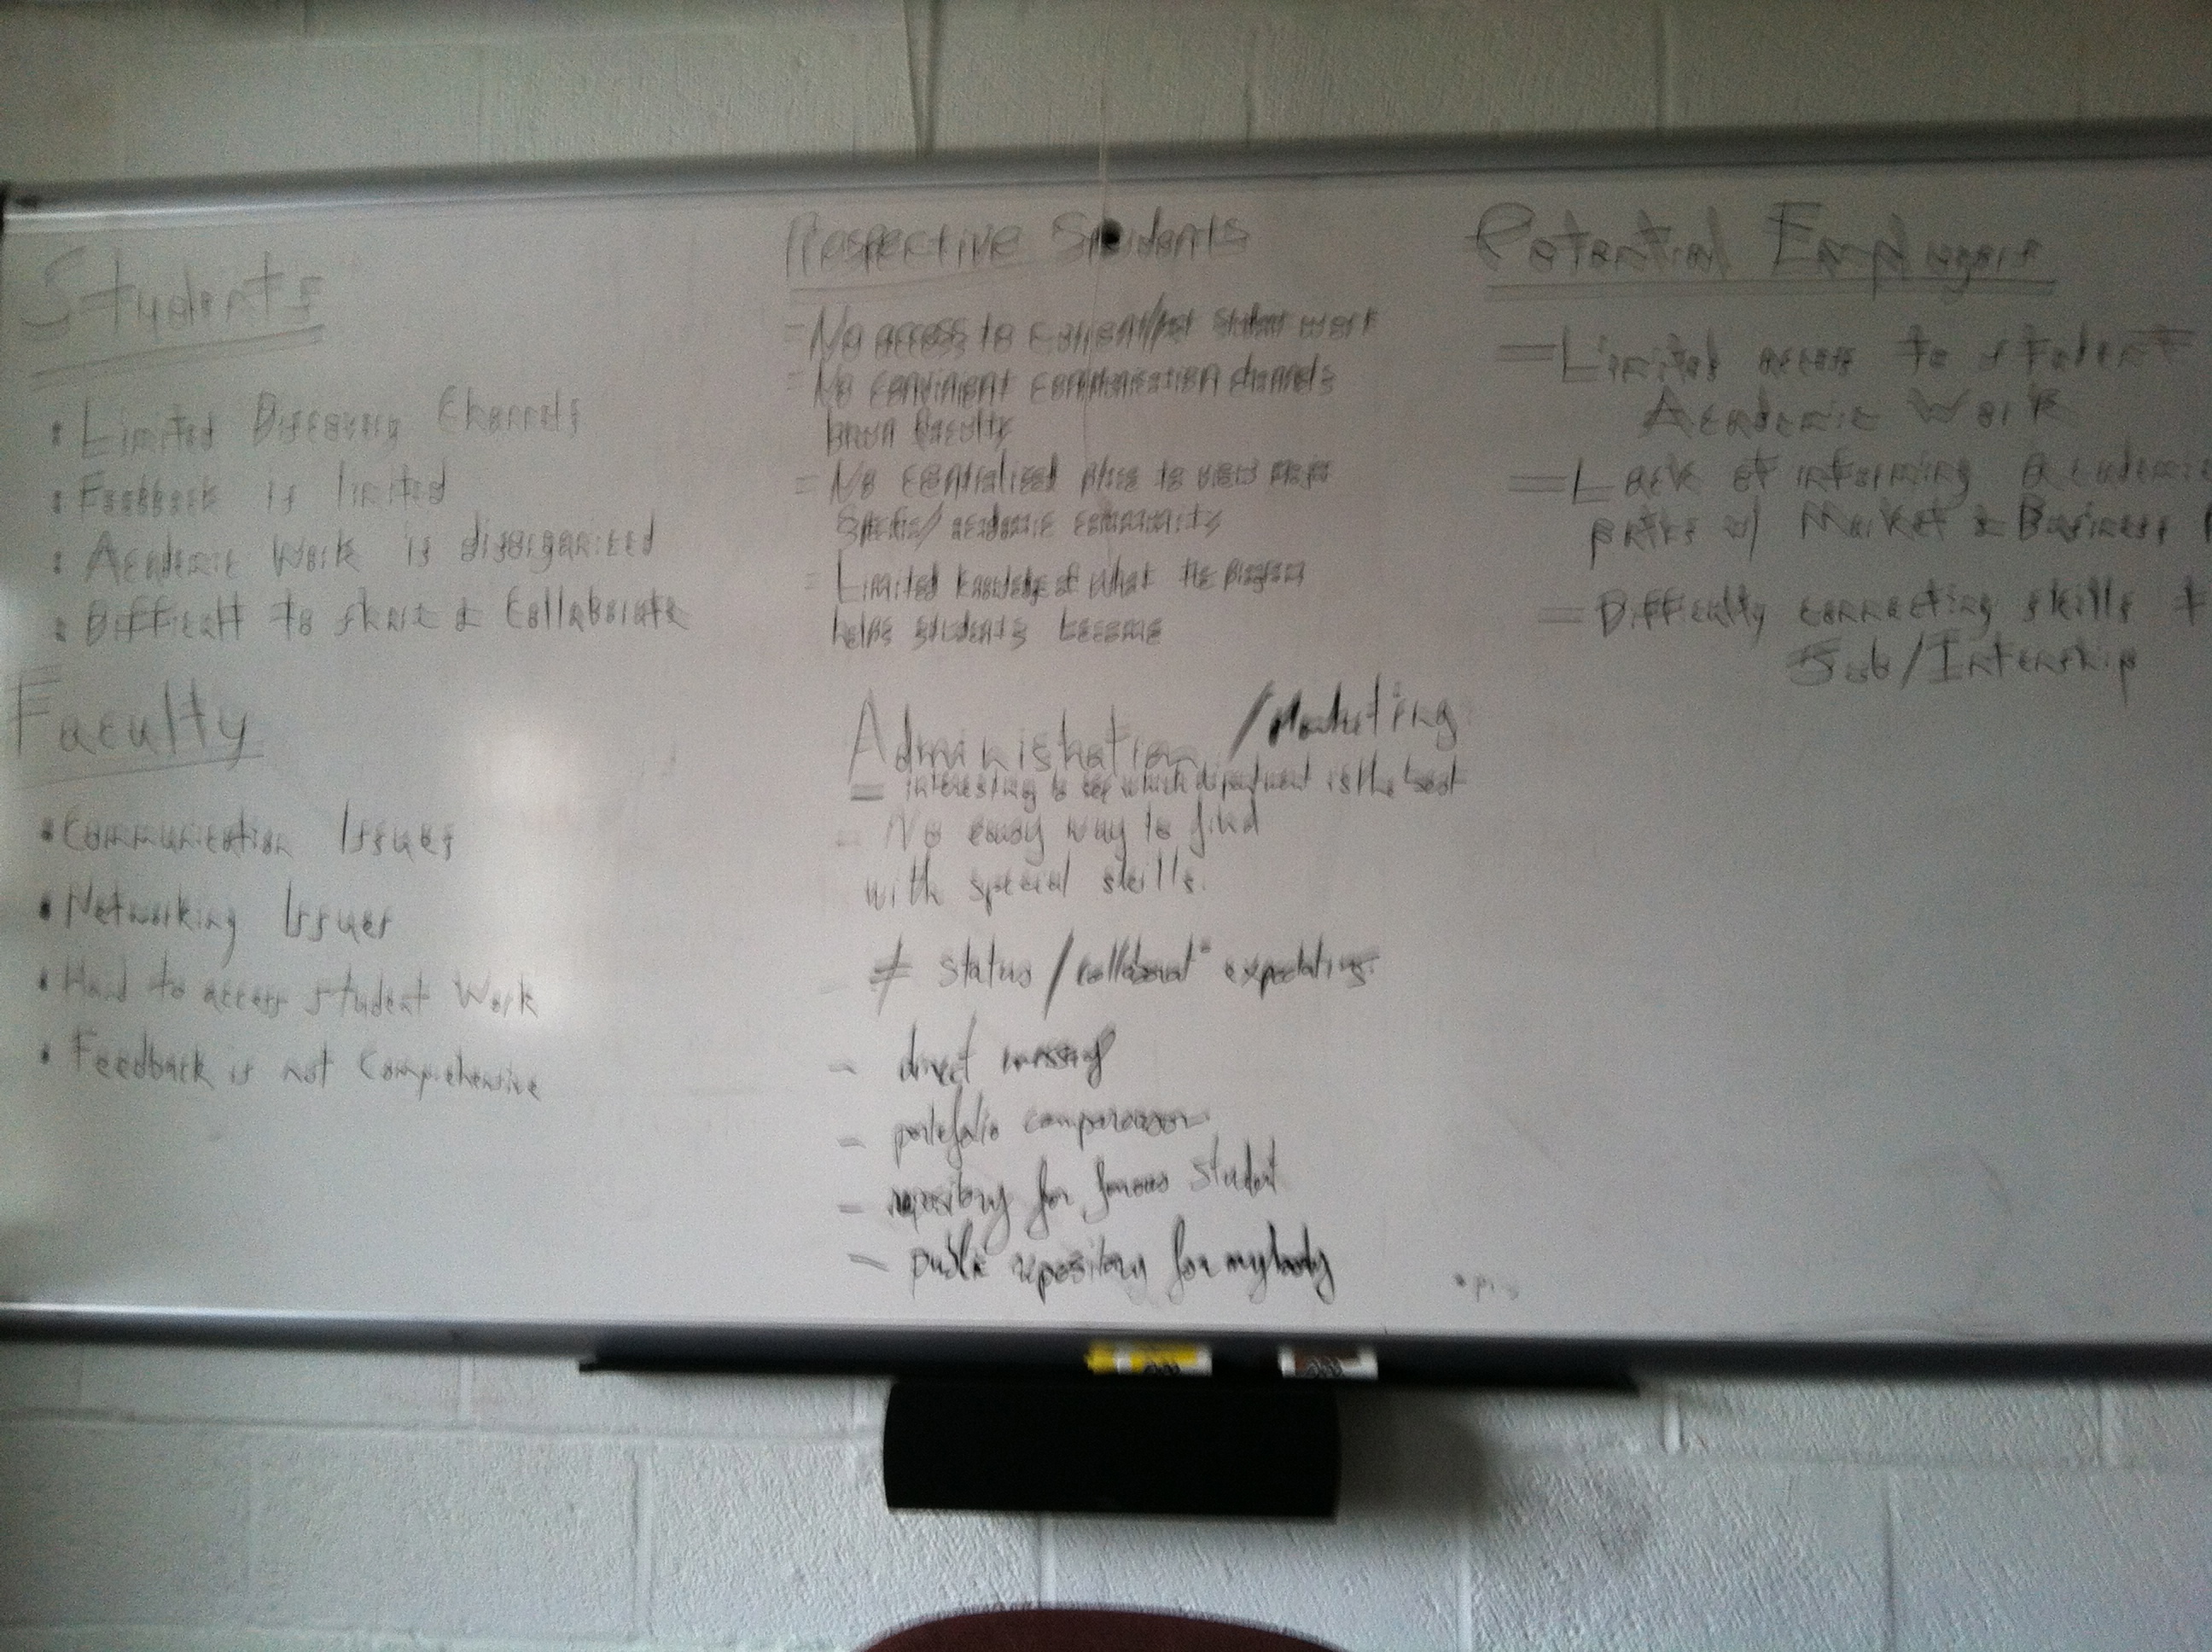 Students
• Limited Discovery Channels
• Feedback is limited
• Academic Work is disorganized
• Difficult to share & Collaborate
Faculty
• Communication Issues
• Networking Issues
• Hard to access student Work
• Feedback is not Comprehensive
Prospective Students
- No access to current/past student work
- No convinient communication channels
faculty
- No centralized place to view major
Specific/academic community
- Limited knowledge of what the program
helps students become
Administration /Marketing
- interesting to see which department is the best
- No easy way to find
with special skills.
≠ status / collaborat° expectations
- direct
- portefolio comparaison
- repository for famous student
- public repository for anybody
Potential Employers
- Limited access to student
Academic Work
- Lack of informing academic
paths w/ Market & Business
- Difficulty connecting skills
Job/Internship